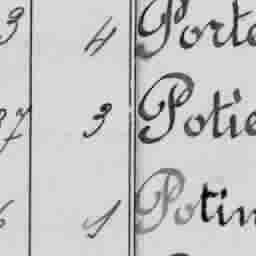 3 4 Porte
37 3 Potie
6 1 Potin